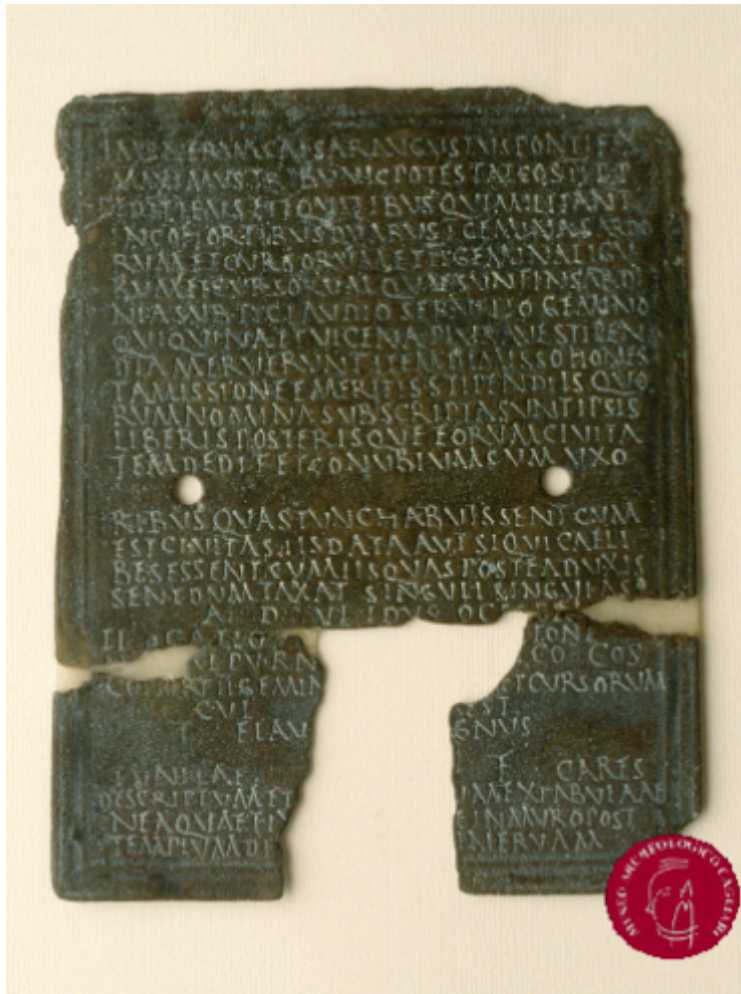 IMP NERVA CAESAR AVGVSTVS PONTIFEX
MAXIMVS TRIBVNIC POTESTAT COS II P P
PEDITIBVS ET EQVITIBVS QVI MILITANT
IN COHORTIBVS DVABVS I GEMINA SARDO
RVM ET CVRSORVM ET II GEMINA LIGV
RVM ET CVRSORVM QVAE SVNT IN SARDI
NIA SVB TI CLAVDIO SERVILIO GEMINO
QVI QVINA ET VICENA PLVRAVE STIPEN
DIA MERVERVNT ITEM DIMISSO HONES
TA MISSIONE EMERITIS STIPENDIIS QVO
RVM NOMINA SVBSCRIPTA SVNT IPSIS
LIBERIS POSTERISQVE EORVM CIVITA
TEM DEDIT ET CONVBIVM CVM VXO
RIBVS QVAS TVNC HABVISSENT CVM
EST CIVITAS IIS DATA AVT SIQVI CAELI
BES ESSENT CVM IIS QVAS POSTEA DVXIS
SENT DVMTAXAT SINGVLI SINGVLAS
A D VI IDVS OCT
CO COS
COHORT II GEMIN ET CVRSORVM
CVI
GNVS
F CARES
DESCRIPTVM ET M EX TABVLA AE
NEA QVAE FIX IN MVRO POST
TEMPLVM DI NERVAM
MUSEO ARCHEOLOGICO CAGLIARI